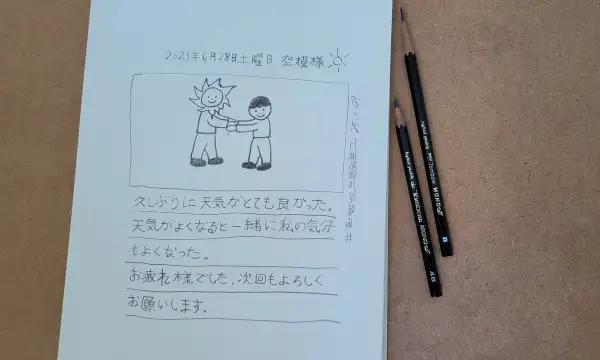 2025年6月28日土曜日 空模様
久しぶりに天気がとても良かった。
天気がよくなると一緒に私の気分
もよくなった。
お疲れ様でした、次回もよろしく
お願いします。
MONO
4B